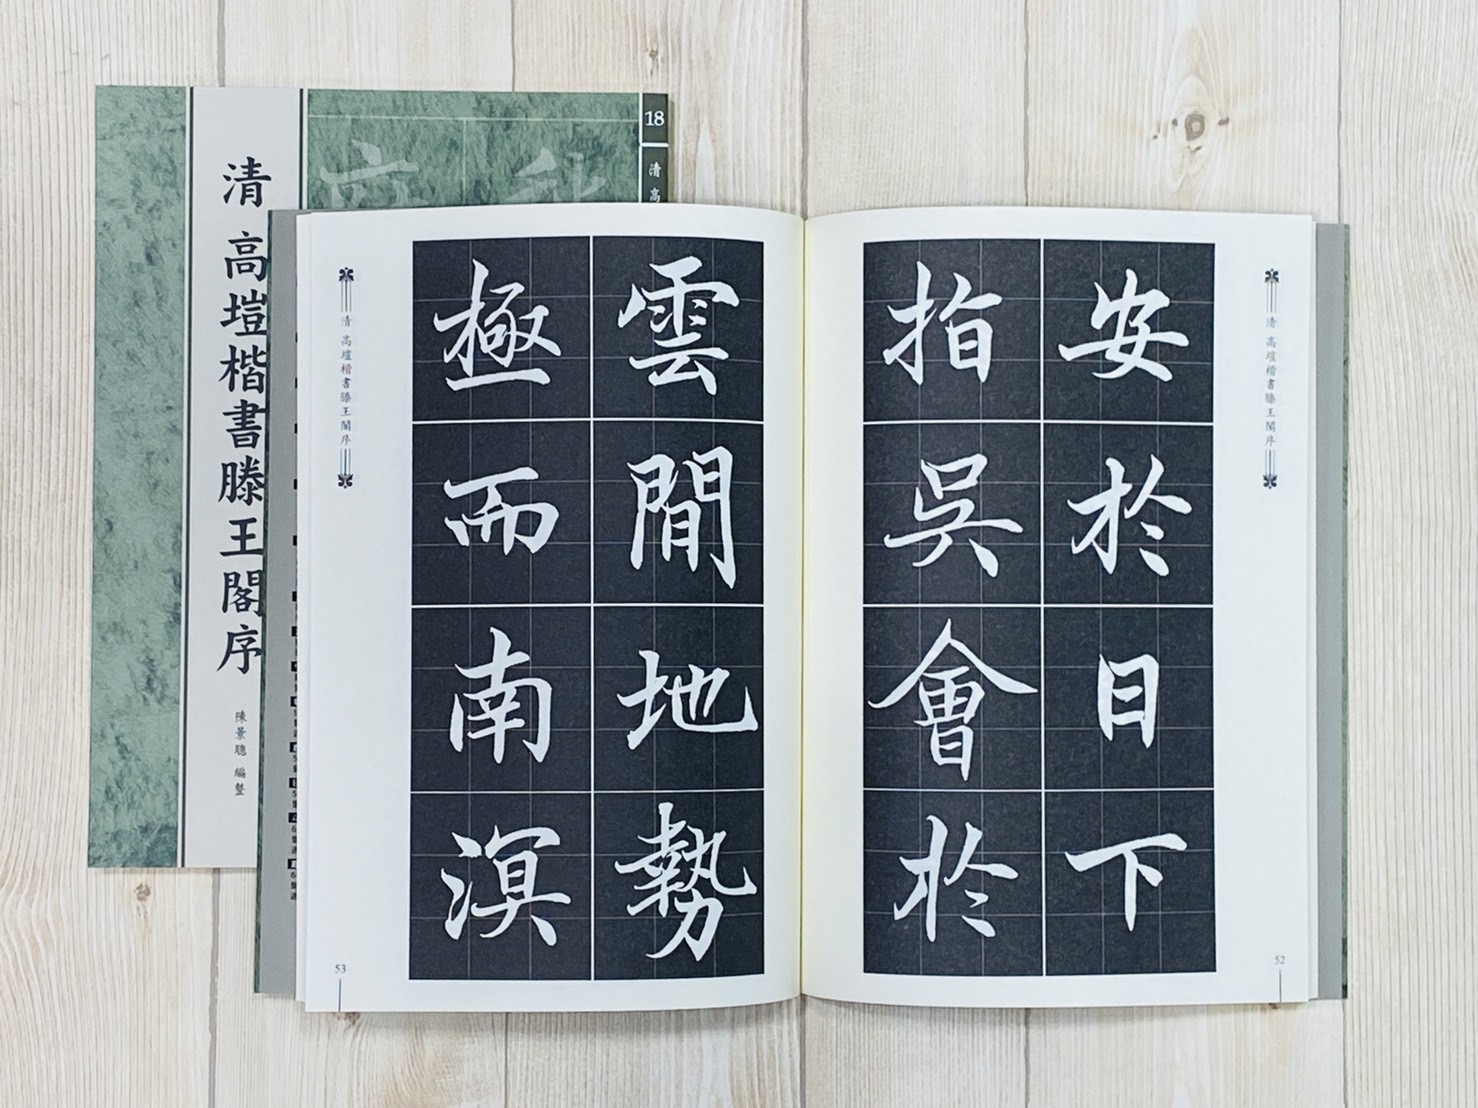 清 高塏楷書滕王閣序
陳景聰 編整
18
清 高
清 高塏楷書滕王閣序
安於日下
指吳會於
52
雲間地勢
極而南溟
清 高塏楷書滕王閣序
53